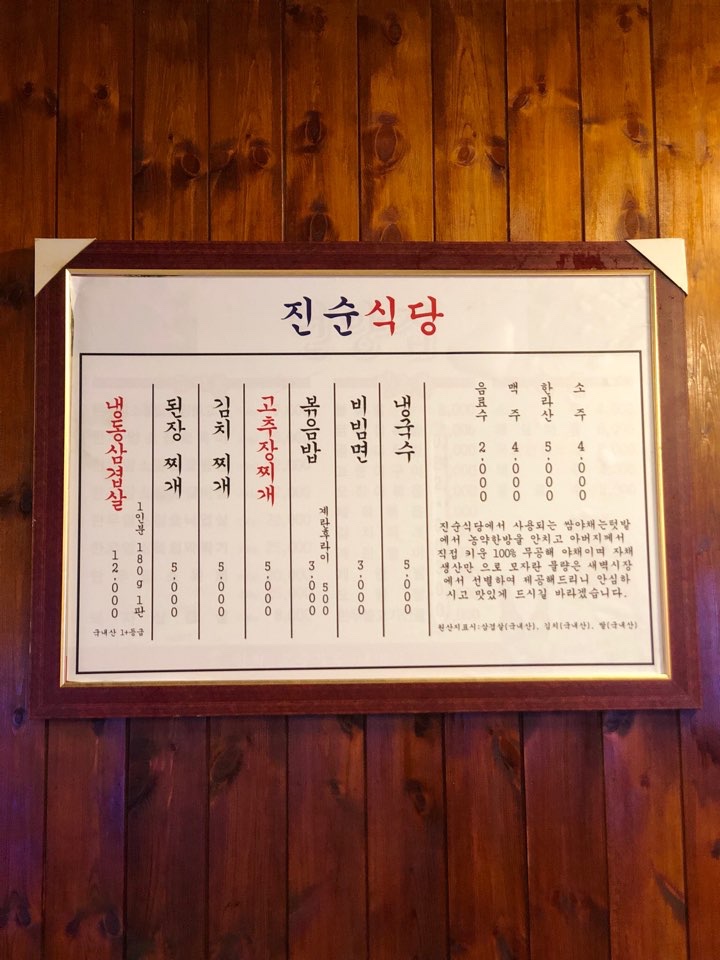 진순식당
냉동삼겹살
1인분 180g 1판
12,000
국내산 1+등급
된장 찌개
5,000
김치 찌개
5,000
고추장찌개
5,000
볶음밥
3,000
계란후라이
500
비빔면
3,000
냉국수
5,000
음료수 2,000
맥주 4,000
한라산 5,000
소주 4,000
진순식당에서 사용되는 쌈야채는텃밭
에서 농약한방울 안치고 아버지께서
직접 키운 100% 무공해 야채이며 자체
생산만 으로 모자란 물량은 새벽시장
에서 선별하여 제공해드리니 안심하
시고 맛있게 드시길 바라겠습니다.
원산지표시:삼겹살(국내산), 김치(국내산), 쌀(국내산)